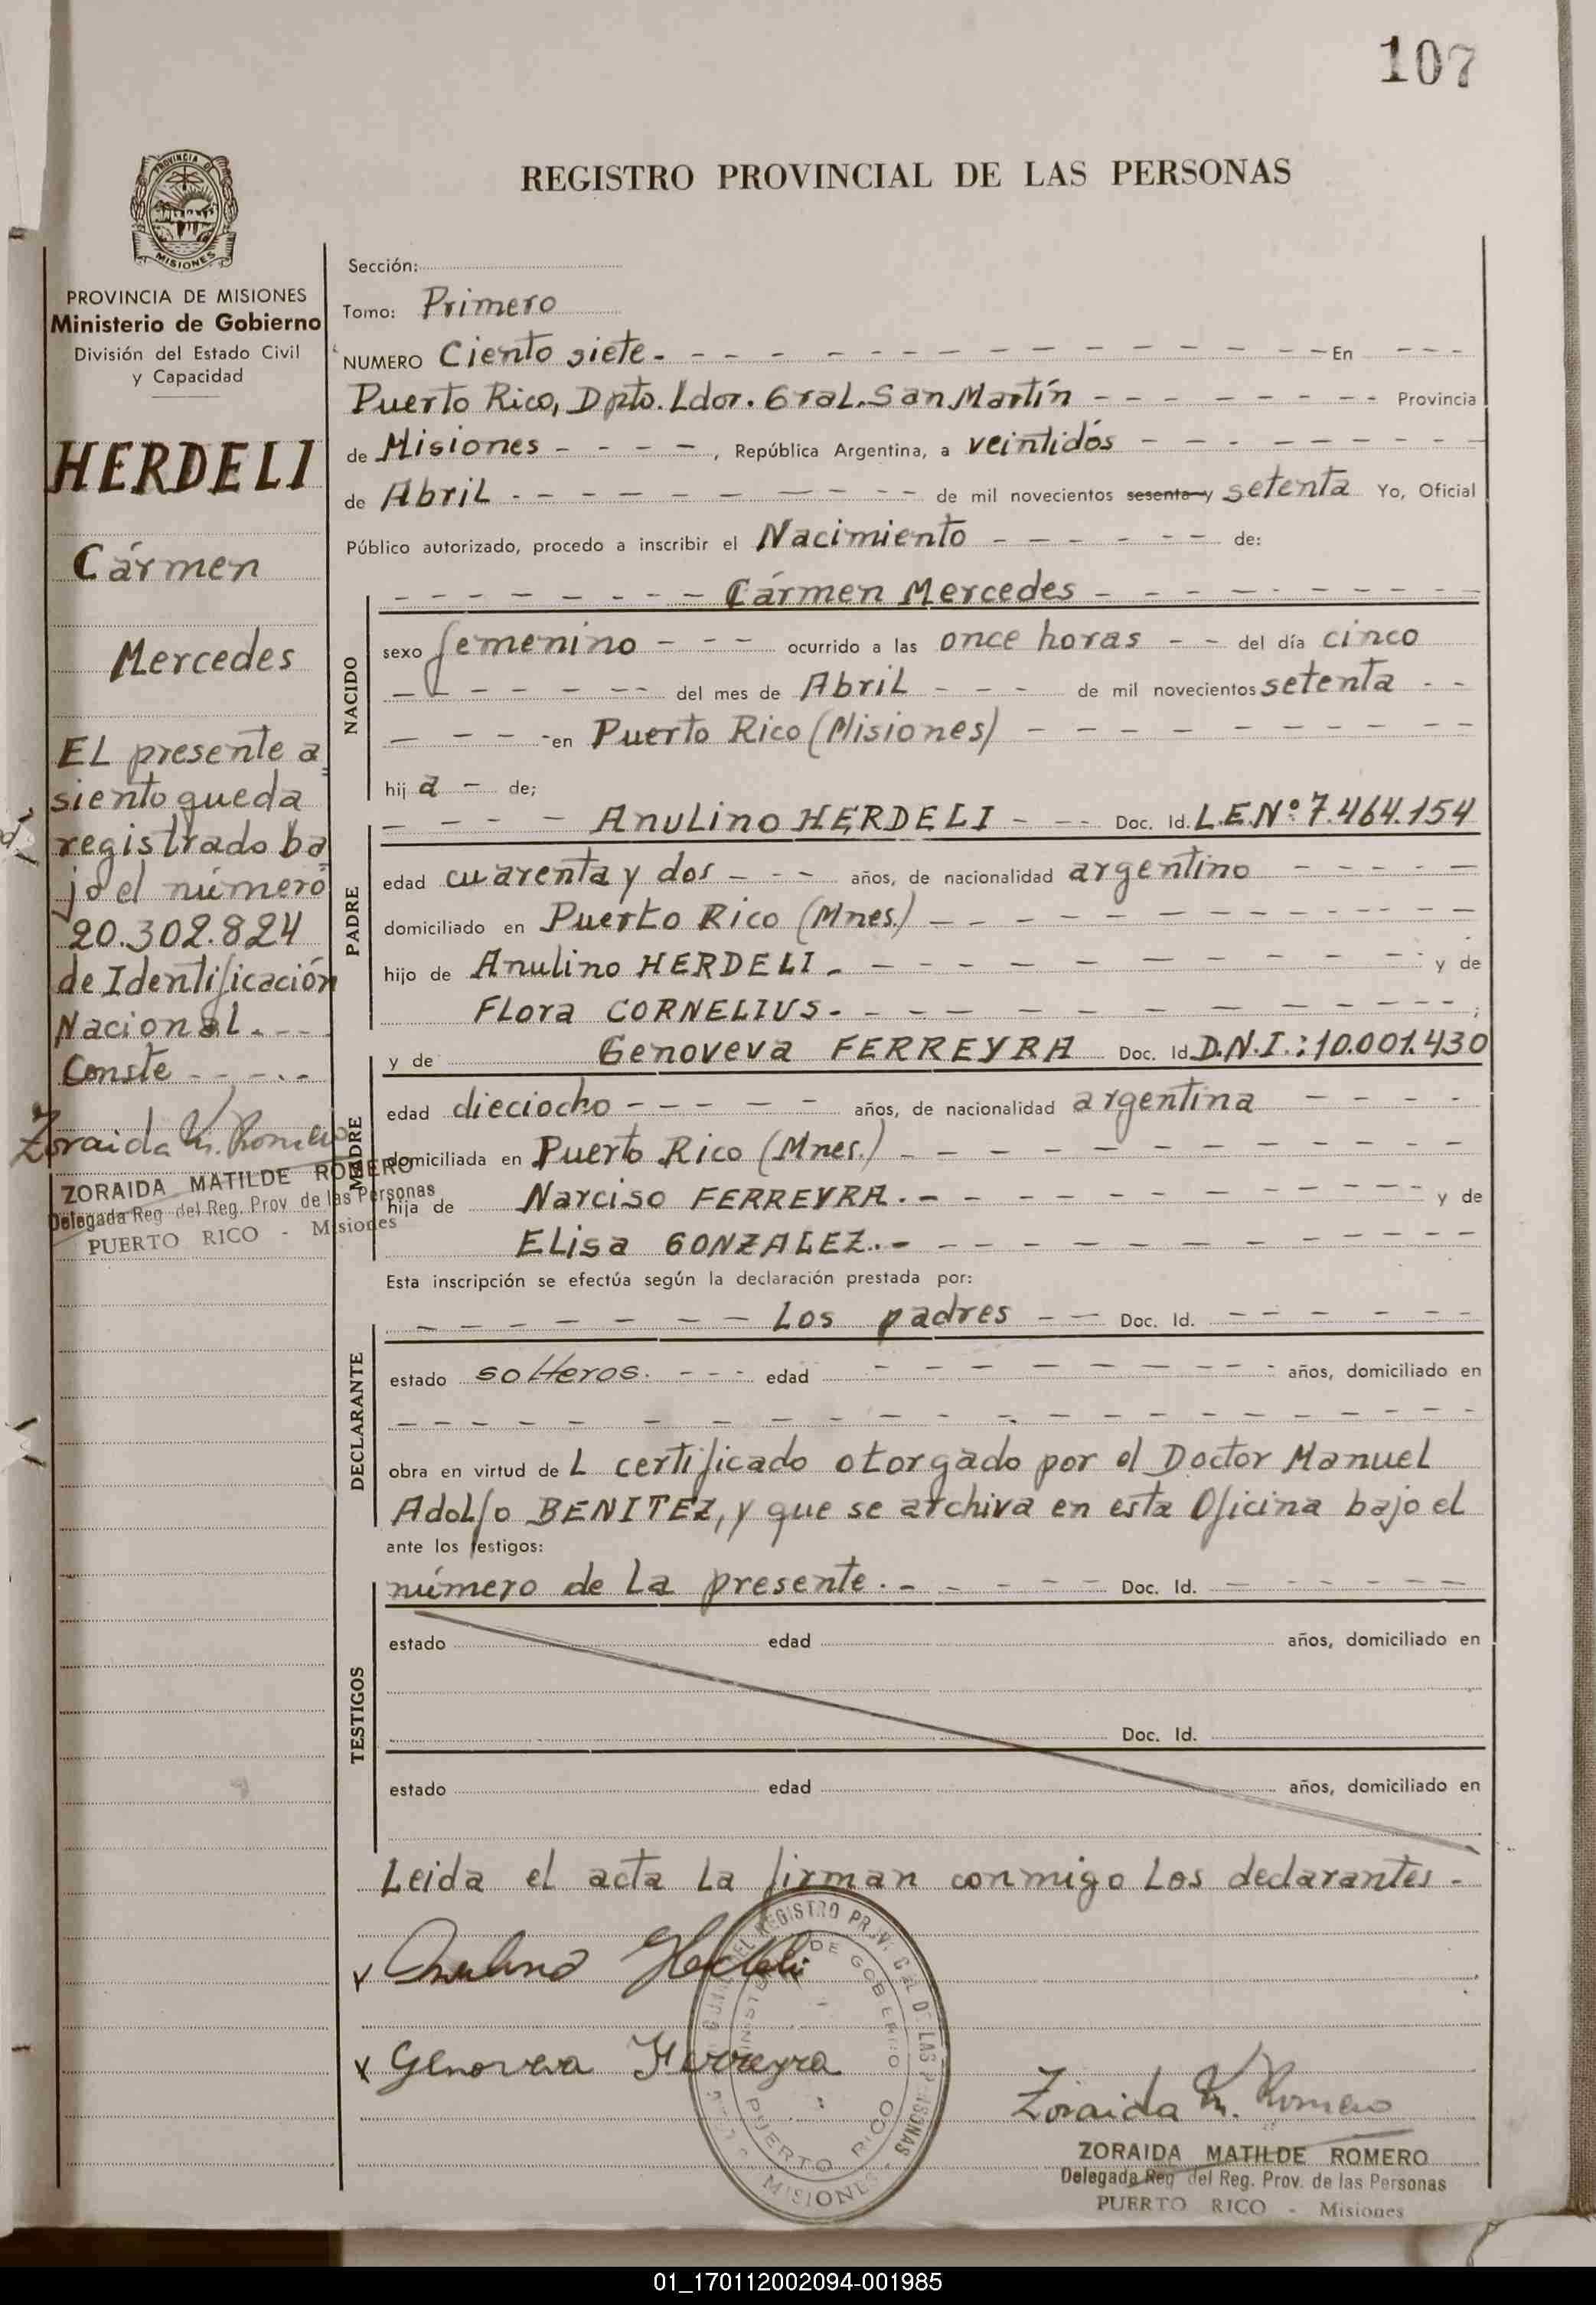 107
REGISTRO PROVINCIAL DE LAS PERSONAS
PROVINCIA DE MISIONES
PROVINCIA DE MISIONES
Ministerio de Gobierno
División del Estado Civil
y Capacidad
HERDELI
Cármen
Mercedes
EL presente a
siento queda
registrado ba
jo el número
20.302.824
de Identificación
Nacional. - - -
Conste - - - - -
Zoraida M. Romero
ZORAIDA MATILDE ROMERO
Delegada Reg del Reg. Prov de las Personas
PUERTO RICO - Misiones
Sección:
Tomo: Primero
NUMERO Ciento siete. - - - - - - - - - - - - - - En - - -
Puerto Rico, Dpto. Ldor. Gral. San Martín - - - - - - - - Provincia
de Misiones - - - -, República Argentina, a veintidós - - - - - - - -
de Abril - - - - - - - - - - de mil novecientos sesenta y setenta Yo, Oficial
Público autorizado, procedo a inscribir el Nacimiento - - - - - - de:
NACIDO
- - - - - - - - Cármen Mercedes - - - - - - - - -
sexo femenino - - - ocurrido a las once horas - - del día cinco
- - - - - - - del mes de Abril - - - de mil novecientos setenta - -
- - - - en Puerto Rico (Misiones) - - - - - - - - -
hij a - de;
PADRE
- - - - Anulino HERDELI - - - Doc. Id. L.E.Nº: 7.464.154
edad cuarenta y dos - - - años, de nacionalidad argentino - - - - -
domiciliado en Puerto Rico (Mnes.) - - - - - - - - - - - -
hijo de Anulino HERDELI. - - - - - - - - - - - y de
Flora CORNELIUS. - - - - - - - - - - - ;
MADRE
y de Genoveva FERREYRA Doc. Id. D.N.I.: 10.001.430
edad dieciocho - - - - - - años, de nacionalidad argentina - - - -
domiciliada en Puerto Rico (Mnes.) - - - - - - - - - - -
hija de Narciso FERREYRA. - - - - - - - - - - - y de
Elisa GONZALEZ. - - - - - - - - - - - - -
Esta inscripción se efectúa según la declaración prestada por:
DECLARANTE
- - - - - - - Los padres - - Doc. Id. - - - - - -
estado solteros. - - - edad - - - - - - - - - - años, domiciliado en
- - - - - - - - - - - - - - - - - - - -
obra en virtud de L certificado otorgado por el Doctor Manuel
Adolfo BENITEZ, y que se archiva en esta Oficina bajo el
ante los testigos:
TESTIGOS
número de la presente. - - - - - - Doc. Id. - - - - - -
estado edad años, domiciliado en
Doc. Id.
estado edad años, domiciliado en
Leida el acta la firman conmigo los declarantes. -
x Anulino Herdeli
x Genoveva Ferreyra
DEL REGISTRO PROVINCIAL DE LAS PERSONAS
MINISTERIO DE GOBIERNO
PUERTO RICO
MISIONES
Zoraida M. Romero
ZORAIDA MATILDE ROMERO
Delegada Reg del Reg. Prov. de las Personas
PUERTO RICO - Misiones
01_170112002094-001985